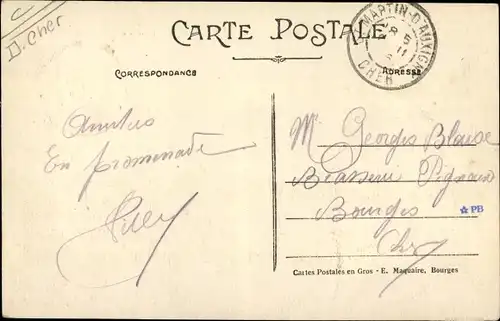 D. Cher
CARTE POSTALE
ST MARTIN-D'AUXIGNY
CHER
CORRESPONDANCE
ADRESSE
Amitiés
En promenade
Mr Georges Blaise
Brasserie
Bourges
Cher
PB
Cartes Postales en Gros - E. Maquaire, Bourges